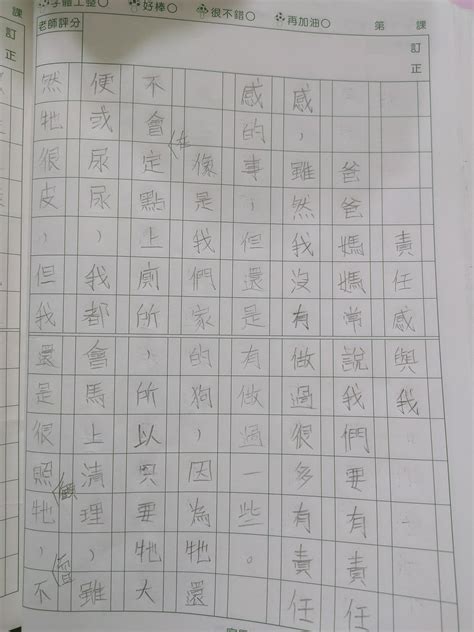 字體工整○ 好棒○ 很不錯○ 再加油○ 第 課
老師評分
訂正
責任感與我
爸爸媽媽常說我們要有責任
感，雖然我沒有做過很多有責任
感的事，但還是有做過一些。
像是我們家的狗，因為牠還
不會在定點上廁所，所以只要牠大
便或尿尿，我都會馬上清理，雖
然牠很皮，但我還是很照顧牠，會不
課
訂正